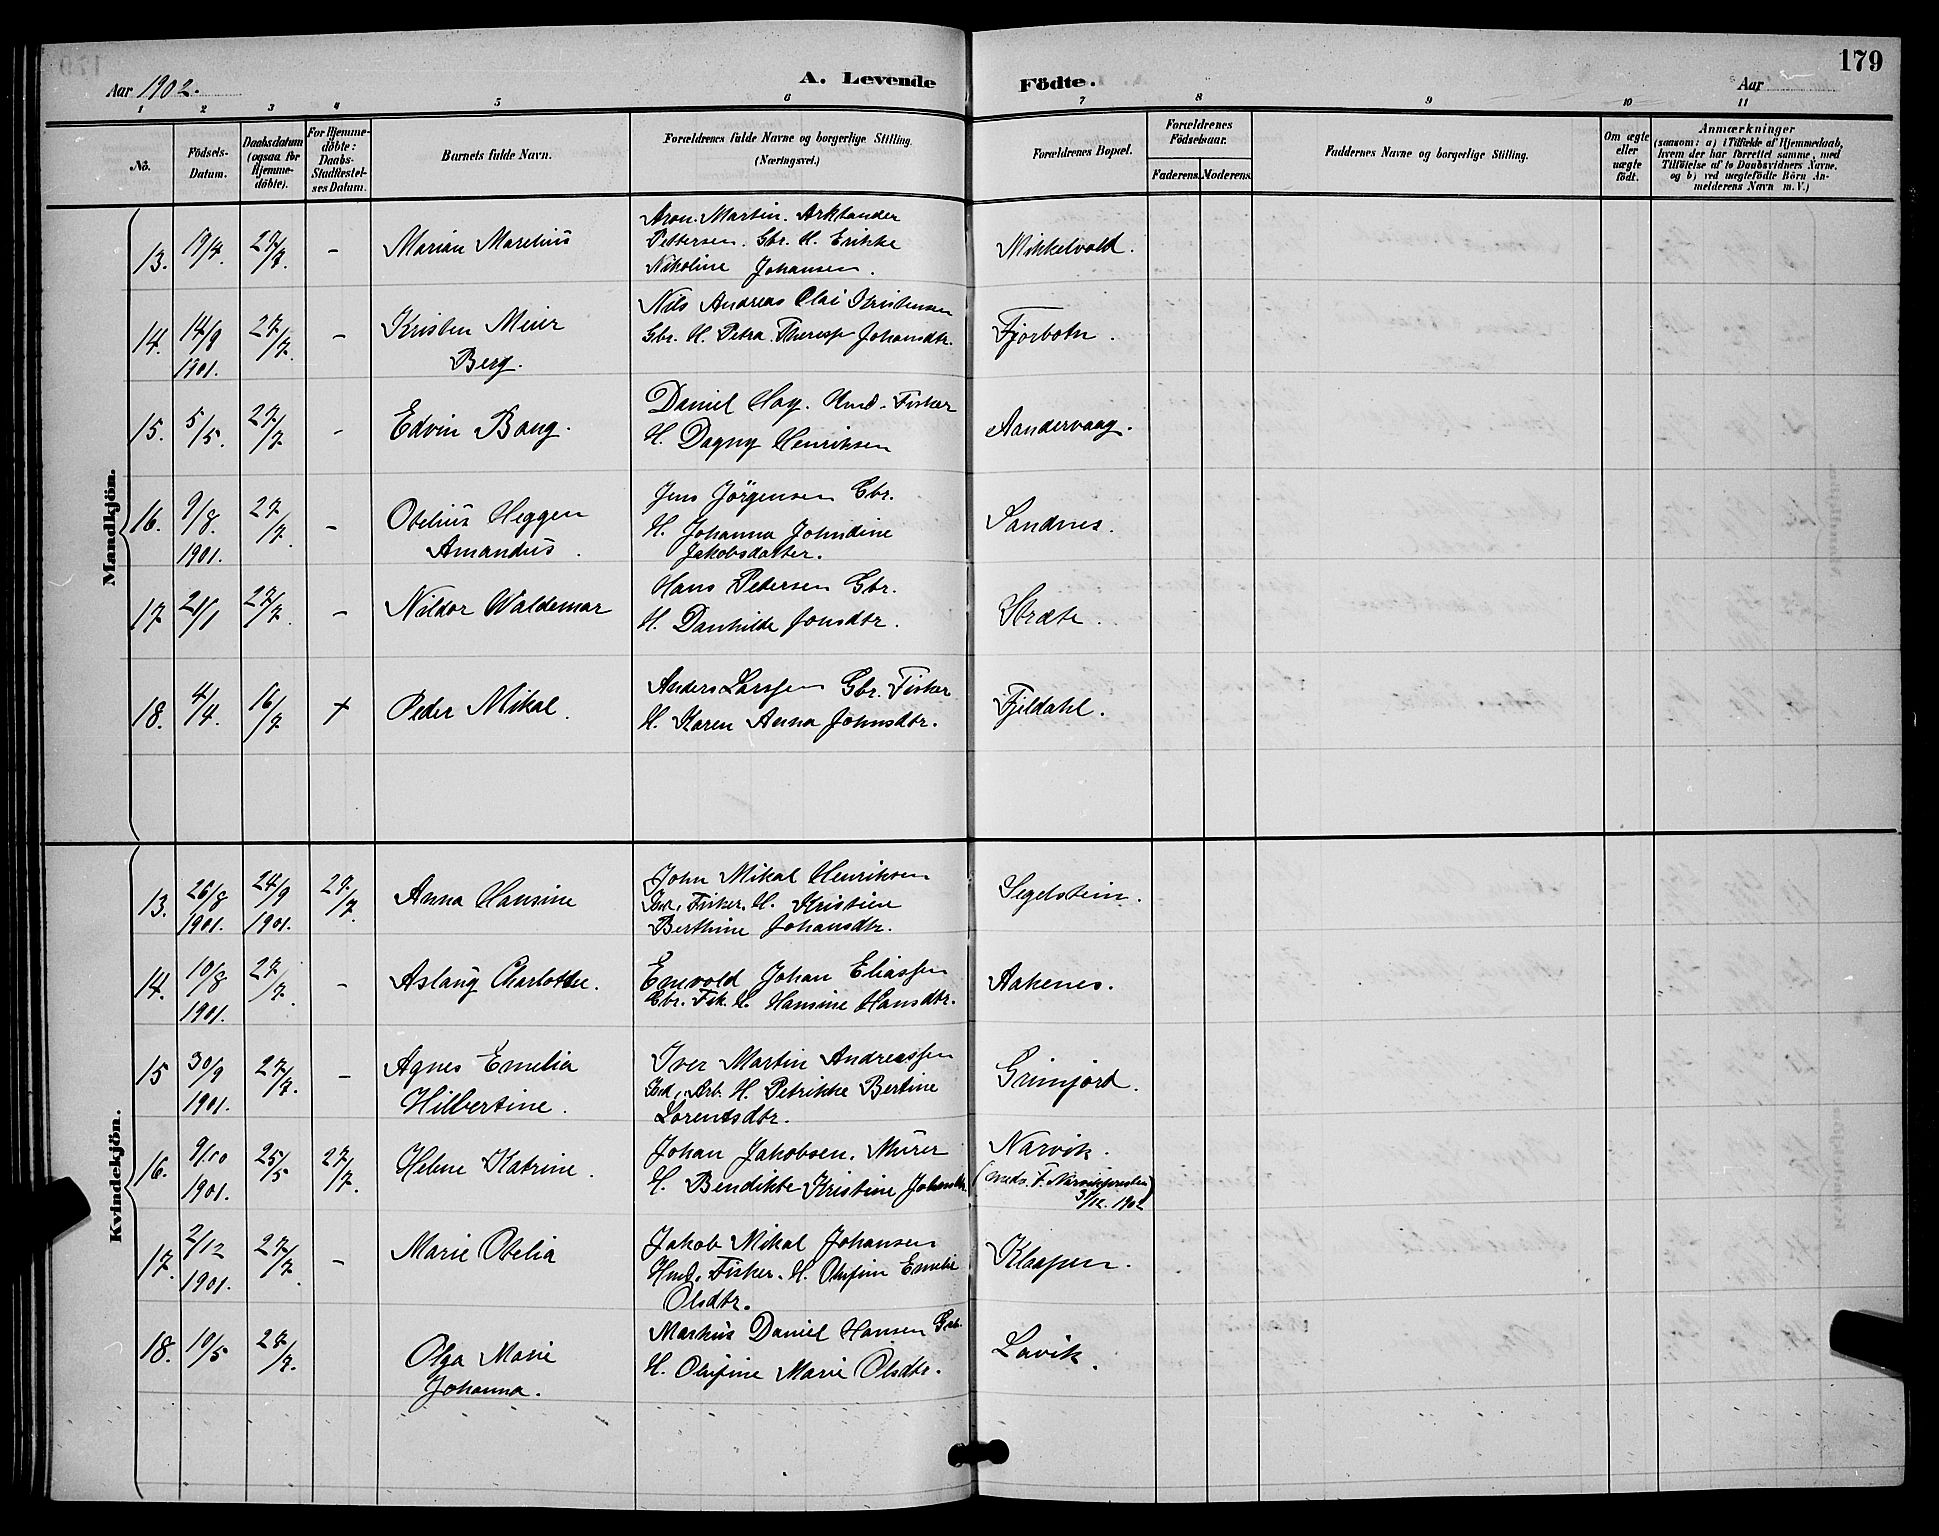 179
Aar 1902.
A. Levende Födte.
Aar
1 2 3 4 5 6 7 8 9 10 11
No.
Födsels-Datum.
Daabsdatum (ogsaa for Hjemmedöbte).
For Hjemmedöbte: Daabs-Stadfæstelses Datum.
Barnets fulde Navn.
Forældrenes fulde Navne og borgerlige Stilling.
(Næringsvei.)
Forældrenes Bopæl.
Forældrenes Födselsaar.
Faderens. Moderens.
Faddernes Navne og borgerlige Stilling.
Om ægte eller uægte födt.
Anmærkninger
(saasom: a) i Tilfælde af Hjemmedaab,
hvem der har forrettet samme, med
Tilföielse af to Daabsvidners Navne,
og b) ved uægtefödte Börn An-
melderens Navn m. V.)
Mandkjön.
13. 19/4. 27/7. - Marian Marelius
Aron. Martin. Arktander
Pettersen. Gbr. H. Erikke
Nikoline Johansen.
Mikkelvold.
14. 14/9 1901. 27/7. - Kristen Meier
Berg.
Nils Andreas Olai Kristensen
Gbr. H. Petra Therese Johansdtr.
Fjorbotn.
15. 5/5. 27/7 - Edvin Bang.
Daniel Hag. Fisker
H. Dagny Henriksen
Aandervaag.
16. 9/8. 1901. 27/7. - Otelius Heggen
Amandus.
Jens Jörgensen Gbr.
H. Johanna Johndine
Jakobsdatter.
Sandnes.
17 21/1 27/7. - Nildor Waldemar
Hans Pedersen Gbr.
H. Danhilde Jonsdtr.
Stræte.
18. 4/4. 16/7. + Peder Mikal.
Anders Larssen Gbr. Fisker
H. Karen Anna Johnsdtr.
Fjeldahl.
Kvindekjön.
13. 26/8 1901. 24/9 1901. 27/7. Anna Hansine
John Mikal Henriksen
Ind. Fisker. H. Kristine
Berthine Johansdtr.
Segelstein.
14. 10/8 1901. 27/7. - Aslaug Charlotte.
Enevold Johan Eliassen
Gbr. Fisk. H. Hansine Hansdtr.
Aakenes.
15 30/9 1901. 27/7. - Agnes Emelia
Hilbertine.
Iver Martin Andreassen
Ind. Arb. H. Petrikke Bertine
Lorentsdtr.
Grimfjord.
16. 9/10 1901. 25/5 27/7. Helene Katrine.
Johan Jakobsen. Murer
H. Bendikte Kristine Johansdtr.
Narvik.
31/12. 1902
17. 2/12 1901. 27/7. - Marie Otelia
Jakob Mikal Johansen
Hmd. Fisker. H. Olufine Emelie
Olsdtr.
Klaapen.
18. 10/5 27/7. Olga Marie
Johanna.
Markus Daniel Hansen Gbr.
H. Olufine Marie Olsdtr.
Lavik.